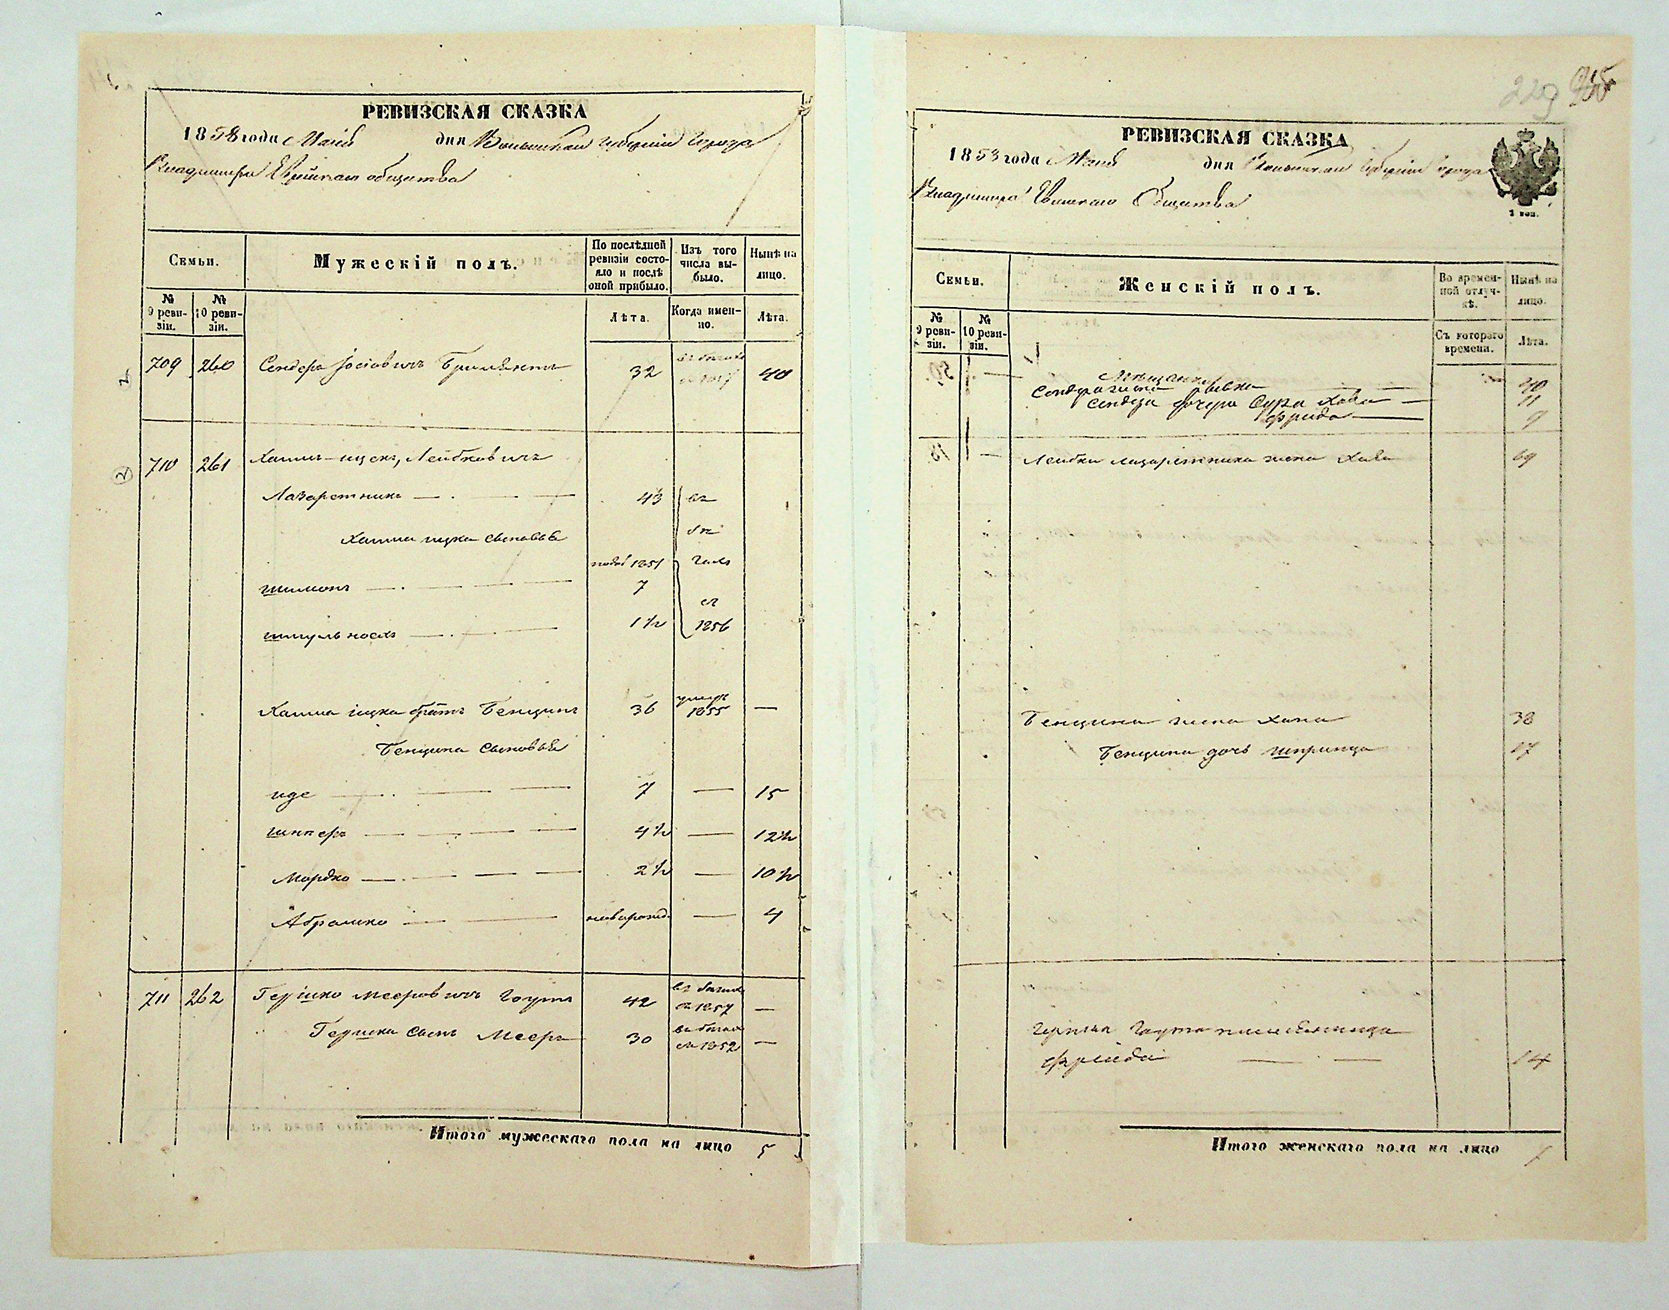 РЕВИЗСКАЯ СКАЗКА
1858 года Маія дня Волынской губерніи города
Владимира Еврейскаго общества
Семьи.
Мужескій полъ.
По послѣдней ревизіи состояло и послѣ оной прибыло.
Изъ того числа выбыло.
Нынѣ на лицо.
№ 9 ревизіи.
№ 10 ревизіи.
Лѣта.
Когда именно.
Лѣта.
709 260 Сендеръ Іосіовичъ 32 40
710 261 Хаимъ-ицекъ, Лейбковичъ
Лазаретникъ 43 въ
Хаима ицка сыновья
1851
Шимонъ 7 съ
1 1/2 1856
Хаима ицка братъ Бенціинъ 36 умеръ 1855 —
Бенціина сыновья
иде 7 — 15
4 1/2 — 12 1/2
Мордко 2 1/2 — 10 1/2
Абрамко новорожд. — 4
711 262 Гершко Мееровичъ Гоутъ 42 въ бѣгахъ съ 1857 —
Гершка сынъ Мееръ 30 въ бѣгахъ съ 1852 —
Итого мужескаго пола на лицо 5
229
РЕВИЗСКАЯ СКАЗКА
1858 года Маія дня Волынской губерніи города
Владимира Еврейскаго Общества
2 коп.
Семьи.
Женскій полъ.
Во временной отлучкѣ.
Нынѣ на лицо.
№ 9 ревизіи.
№ 10 ревизіи.
Съ котораго времени.
Лѣта.
Мѣщанки
Сендера жена Ривка 40
Сендера дочери Сура Хава 11
Фрида 9
Лейбки Лазаретника жена Хава 69
Бенціина жена Хана 38
Бенціина дочь Шпринца 17
Гершка Гоута племянница
Фрейда 14
Итого женскаго пола на лицо